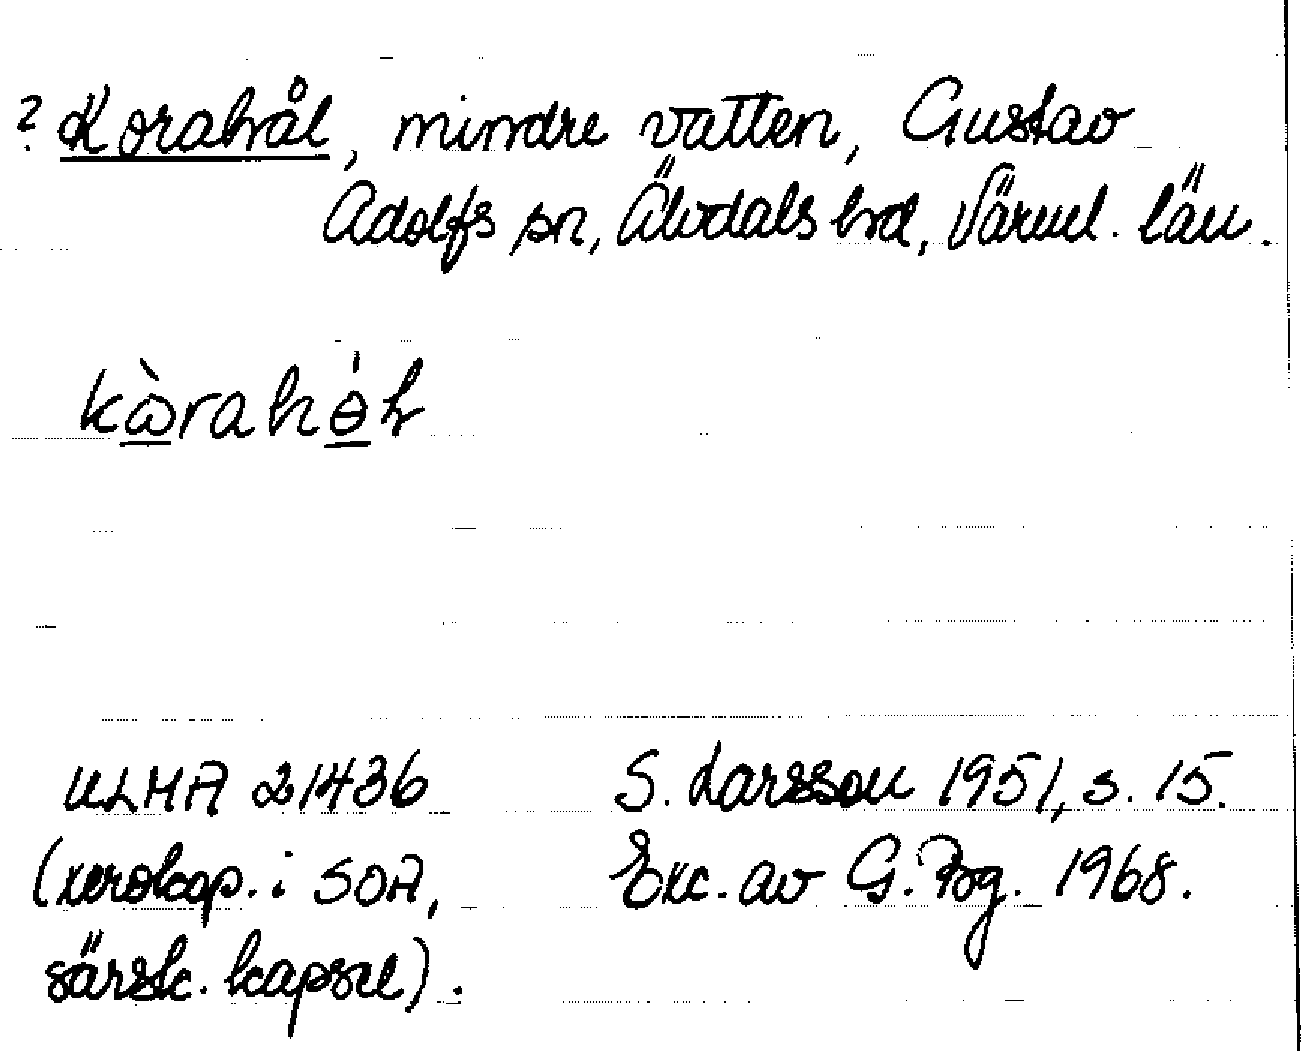 ? Korahål, mindre vatten, Gustav
Adolfs sn, Älvdals hd, Värml. län.
ULMA 21436
(xerokop. i SOA,
särsk. kapsel).
S. Larsson 1951, s. 15.
Exc. av G. Rbg. 1968.